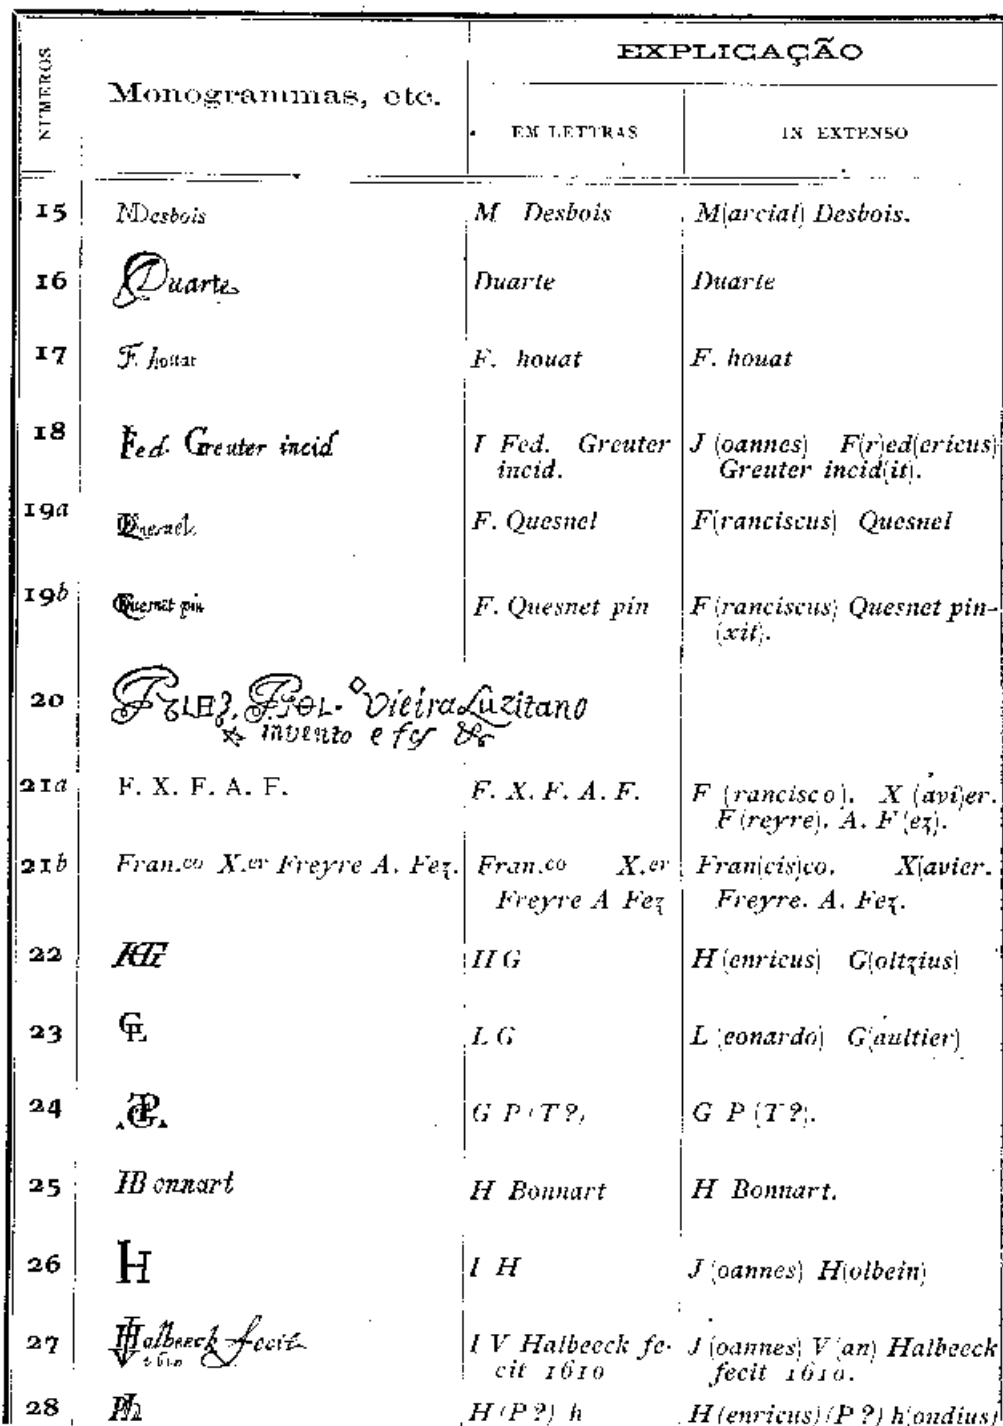 NUMEROS
Monogrammas, etc.
EXPLICAÇÃO
EM LETTRAS
IN EXTENSO
15 MDesbois M Desbois M(arcial) Desbois.
16 Duarte Duarte Duarte
17 F. houat F. houat F. houat
18 Fed. Greuter incid I Fed. Greuter J (oannes) F(r)ed(ericus)
incid. Greuter incid(it).
19a Quesnel F. Quesnel F(ranciscus) Quesnel
19b Quesnet pin F. Quesnet pin F (ranciscus) Quesnet pin-
(xit).
20 Vieira Luzitano
invento e
21a F. X. F. A. F. F. X. F. A. F. F (rancisco). X (avi)er.
F (reyre). A. F (ez).
21b Fran.co X.er Freyre A. Fez. Fran.co X.er Fran(cis)co. X(avier.
Freyre A Fez Freyre. A. Fez.
22 HG H G H (enricus) G(oltzius)
23 GL L G L (eonardo) G(aultier)
24 G P (T ?) G P (T ?).
25 HBonnart H Bonnart H Bonnart.
26 IH I H J (oannes) H(olbein)
27 Halbeeck fecit I V Halbeeck fe- J (oannes) V (an) Halbeeck
1610 cit 1610 fecit 1610.
28 Ph H (P ?) h H (enricus) (P ?) h(ondius)